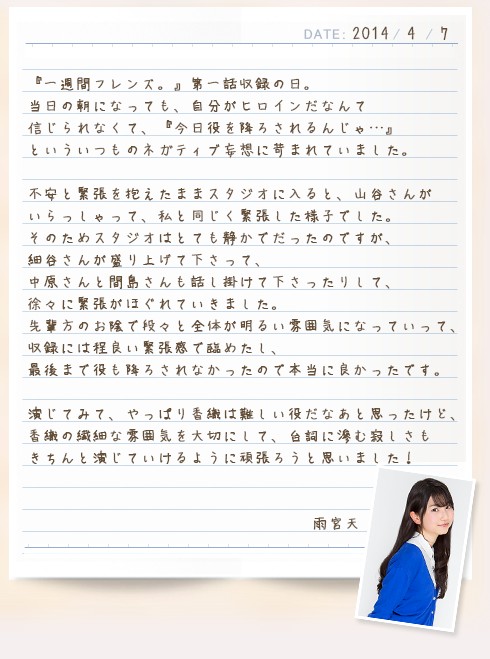 DATE: 2014 / 4 / 7
『一週間フレンズ。』第一話収録の日。
当日の朝になっても、自分がヒロインだなんて
信じられなくて、『今日役を降ろされるんじゃ…』
といういつものネガティブ妄想に苛まれていました。
不安と緊張を抱えたままスタジオに入ると、山谷さんが
いらっしゃって、私と同じく緊張した様子でした。
そのためスタジオはとても静かでだったのですが、
細谷さんが盛り上げて下さって、
中原さんと間島さんも話し掛けて下さったりして、
徐々に緊張がほぐれていきました。
先輩方のお陰で段々と全体が明るい雰囲気になっていって、
収録には程良い緊張感で臨めたし、
最後まで役も降ろされなかったので本当に良かったです。
演じてみて、やっぱり香織は難しい役だなあと思ったけど、
香織の繊細な雰囲気を大切にして、台詞に滲む寂しさも
きちんと演じていけるように頑張ろうと思いました！
雨宮天